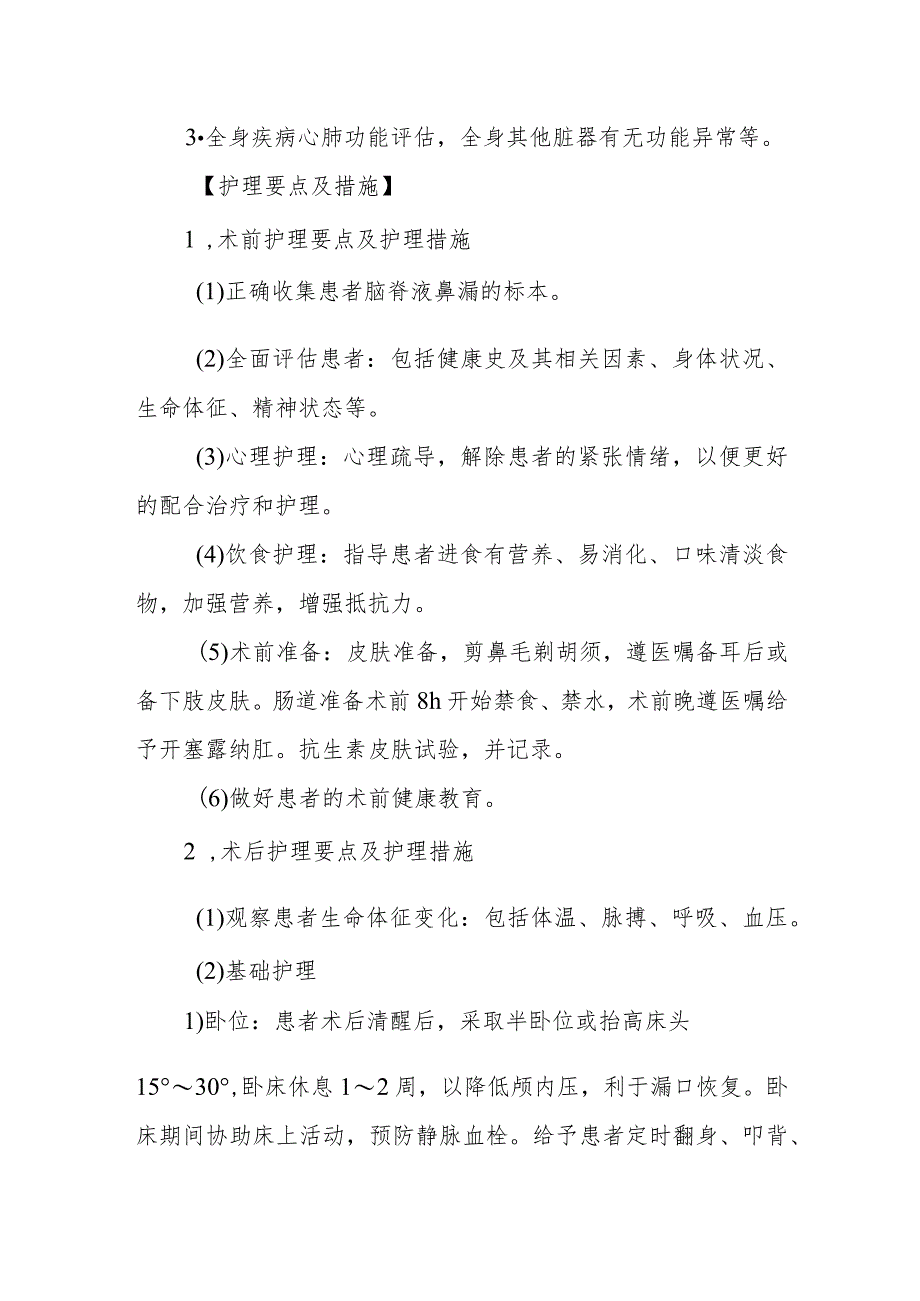 3•全身疾病心肺功能评估，全身其他脏器有无功能异常等。
【护理要点及措施】
1 ,术前护理要点及护理措施
(1)正确收集患者脑脊液鼻漏的标本。
(2)全面评估患者：包括健康史及其相关因素、身体状况、
生命体征、精神状态等。
(3)心理护理：心理疏导，解除患者的紧张情绪，以便更好
的配合治疗和护理。
(4)饮食护理：指导患者进食有营养、易消化、口味清淡食
物，加强营养，增强抵抗力。
(5)术前准备：皮肤准备，剪鼻毛剃胡须，遵医嘱备耳后或
备下肢皮肤。肠道准备术前 8h 开始禁食、禁水，术前晚遵医嘱给
予开塞露纳肛。抗生素皮肤试验，并记录。
(6)做好患者的术前健康教育。
2 ,术后护理要点及护理措施
(1)观察患者生命体征变化：包括体温、脉搏、呼吸、血压。
(2)基础护理
1)卧位：患者术后清醒后，采取半卧位或抬高床头
15°～30°,卧床休息 1～2 周，以降低颅内压，利于漏口恢复。卧
床期间协助床上活动，预防静脉血栓。给予患者定时翻身、叩背、